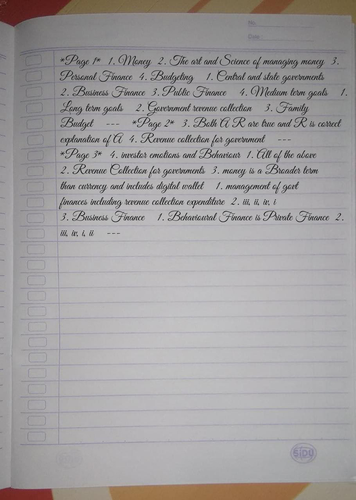 No.
Date:
*Page 1* 1. Money 2. The art and Science of managing money 3.
Personal Finance 4. Budgeting 1. Central and state governments
2. Business Finance 3. Public Finance 4. Medium term goals 1.
Long term goals 2. Government revenue collection 3. Family
Budget --- *Page 2* 3. Both A R are true and R is correct
explanation of A 4. Revenue collection for government ---
*Page 3* 4. investor emotions and Behaviour 1. All of the above
2. Revenue Collection for governments 3. money is a Broader term
than currency and includes digital wallet 1. management of govt
finances including revenue collection expenditure 2. iii, ii, iv, i
3. Business Finance 1. Behavioural Finance is Private Finance 2.
iii, iv, i, ii ---
SIDU